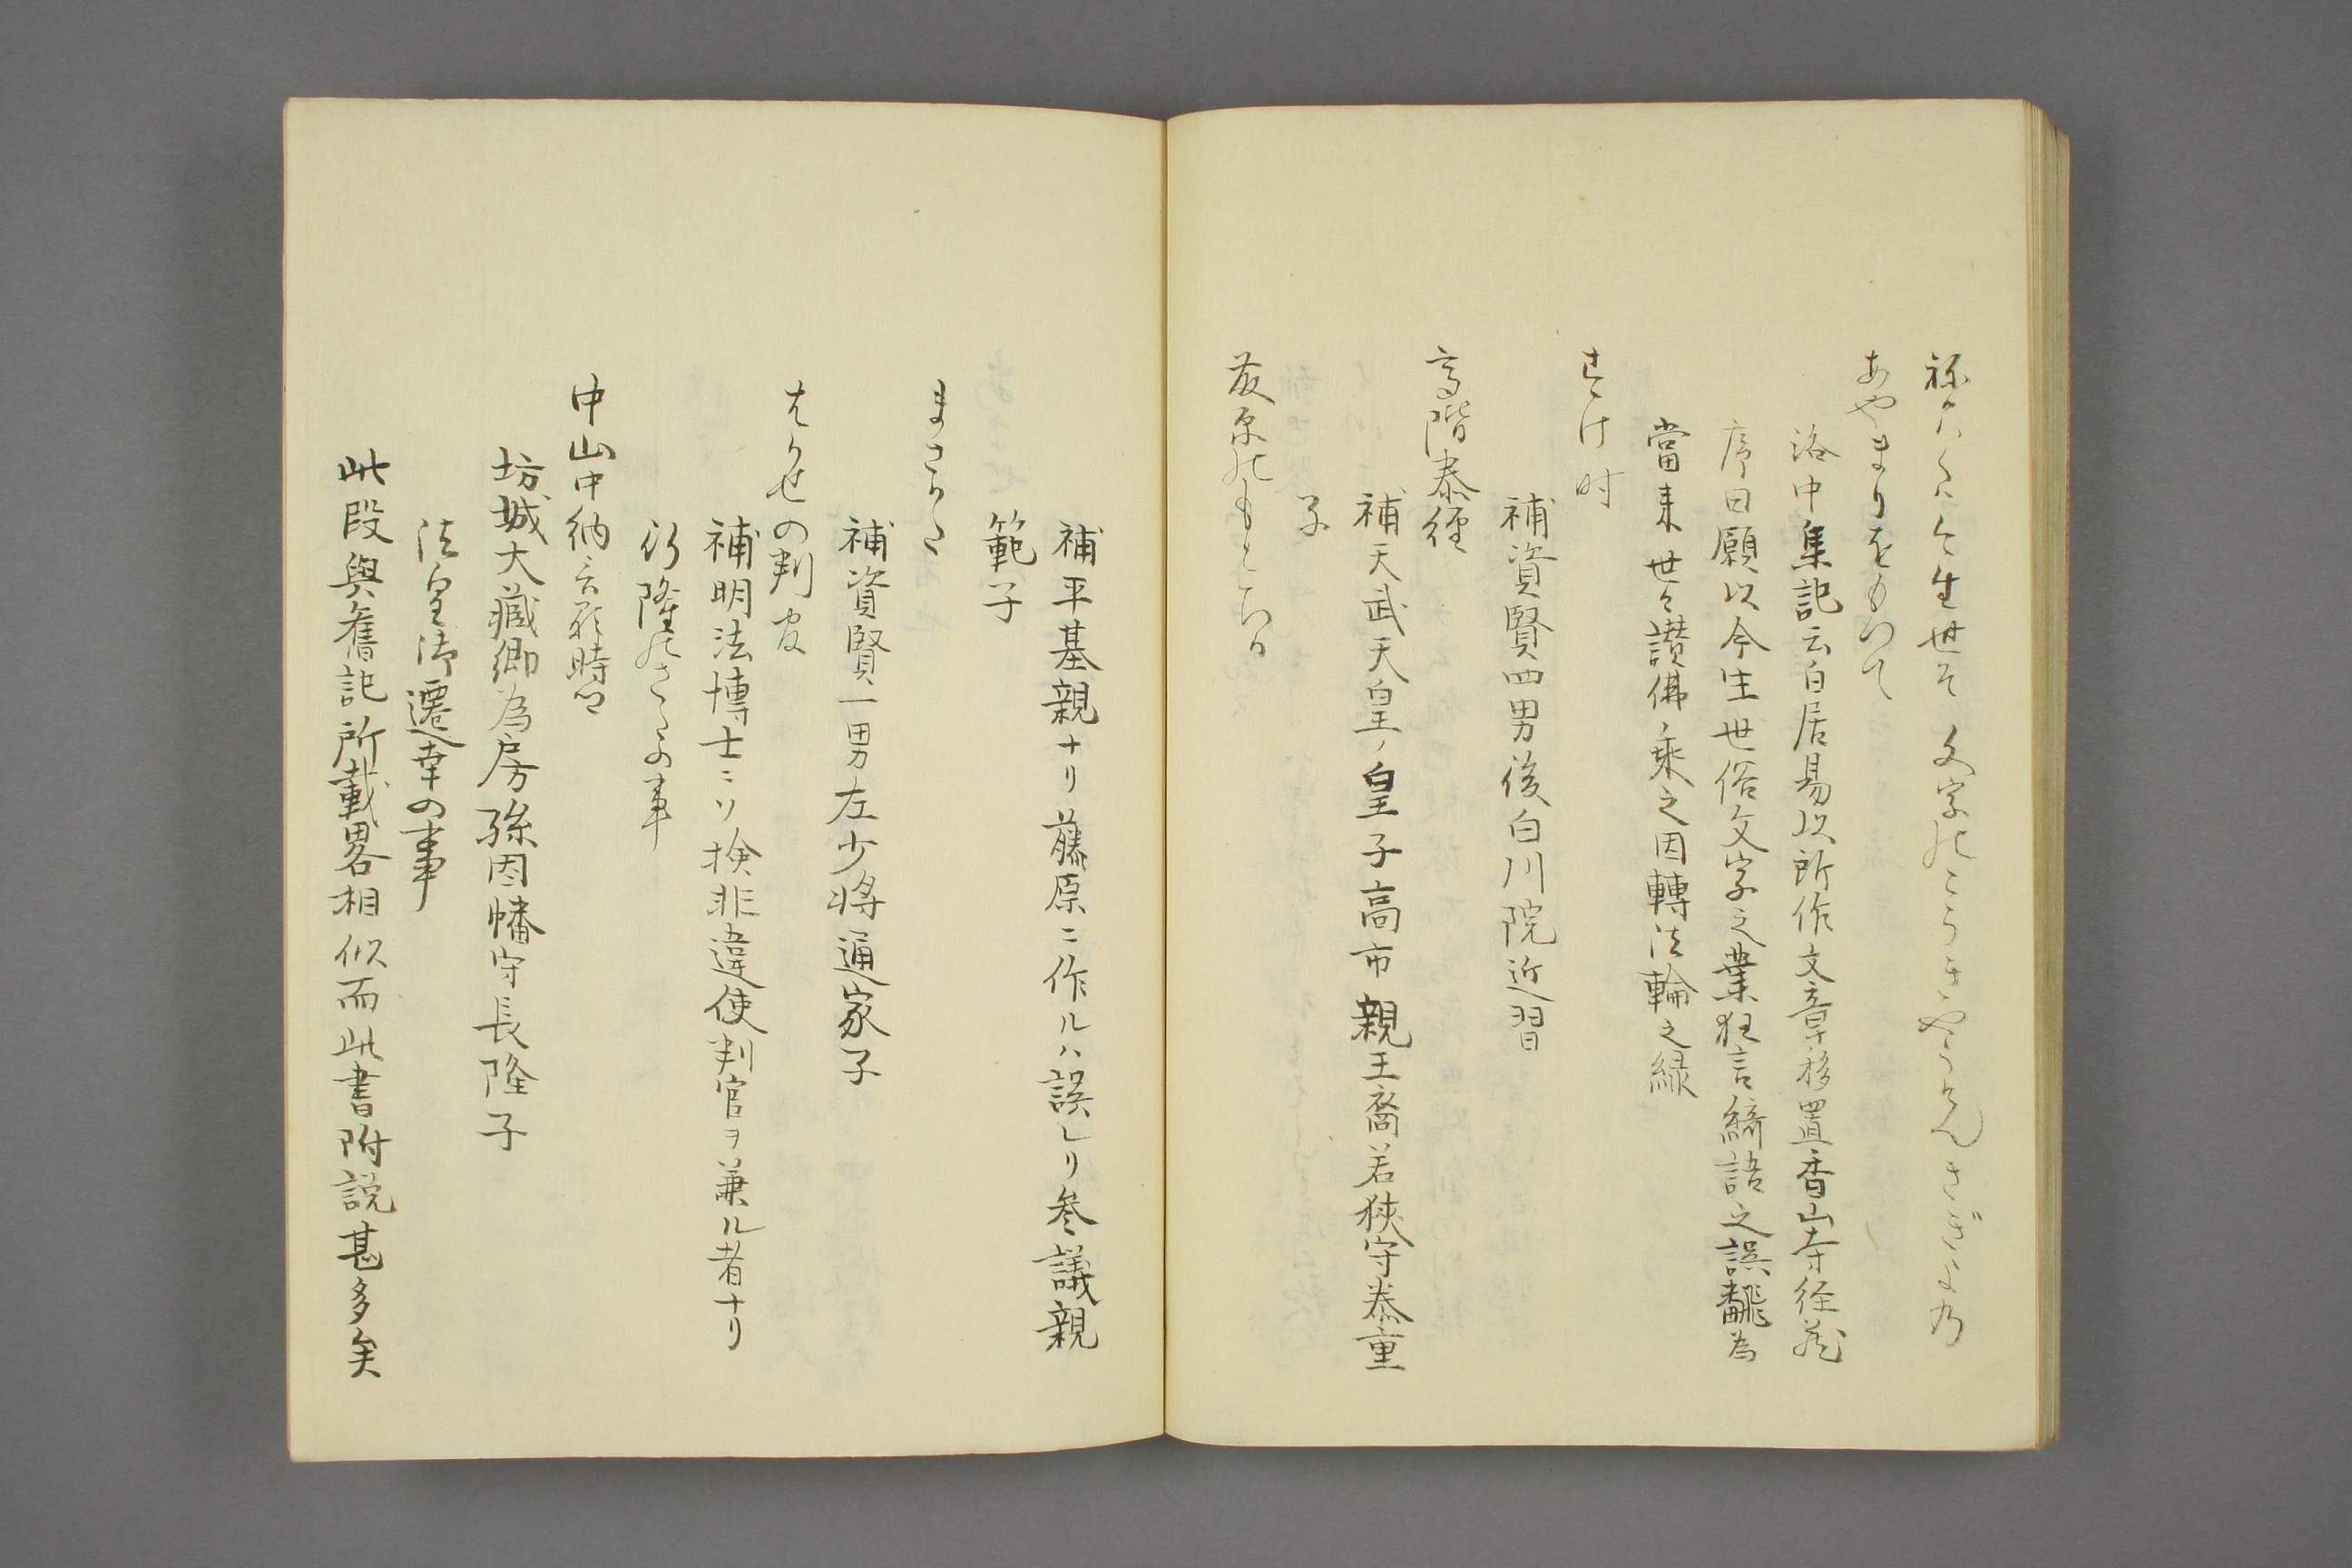 ねかはくは今生世そく文字のこうきやうけんきぎよの
あやまりをもつて
洛中集記云白居易以所作文章移置香山寺経蔵
序曰願以今生世俗文字之業狂言綺語之誤翻為
當来世々讃佛ノ乗之因轉法輪之縁
すけ時
補資賢四男後白川院近習
高階泰經
補天武天皇ノ皇子高市親王裔若狭守泰重
子
藤原のもとちか
補平基親ナリ藤原ニ作ルハ誤レリ参議親
範子
まさかた
補資賢一男左少将通家子
はかせの判官
補明法博士ニソ検非違使判官ヲ兼ル者ナリ
行隆のさたの事
中山中納言顕時
坊城大蔵卿為房孫因幡守長隆子
法皇御遷幸の事
此段與舊記所載畧相似而此書附説甚多矣